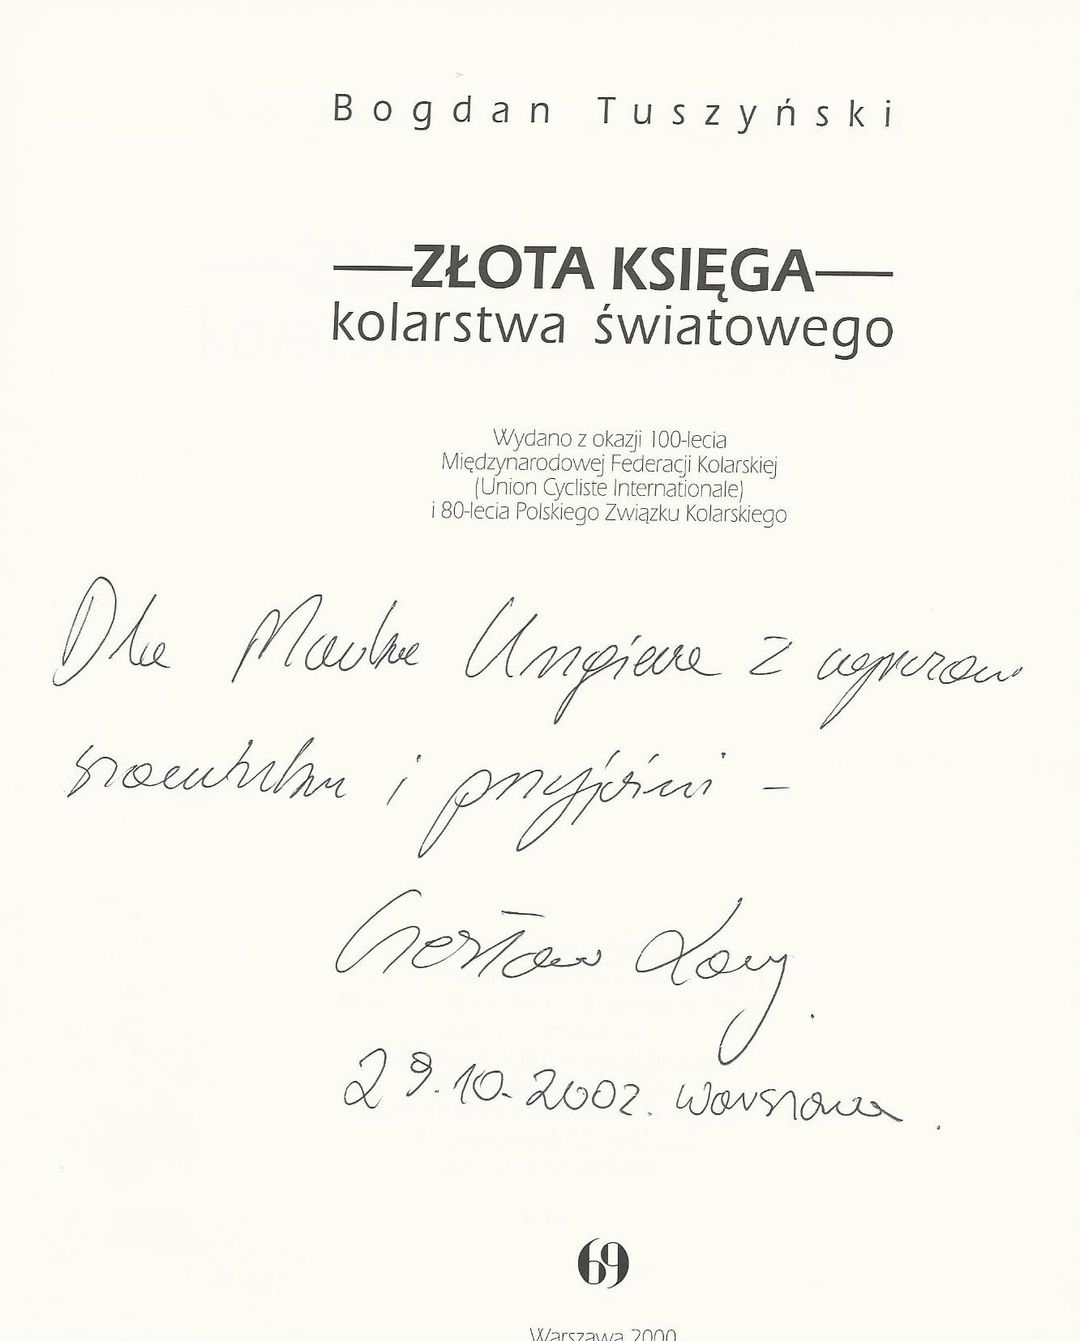 Bogdan Tuszyński
ZŁOTA KSIĘGA
kolarstwa światowego
Wydano z okazji 100-lecia
Międzynarodowej Federacji Kolarskiej
(Union Cycliste Internationale)
i 80-lecia Polskiego Związku Kolarskiego
Dla Marka Ungiera z wyrazami
szacunku i przyjaźni –
Czesław Lang
29.10.2002. Warszawa.
69
Warszawa 2000